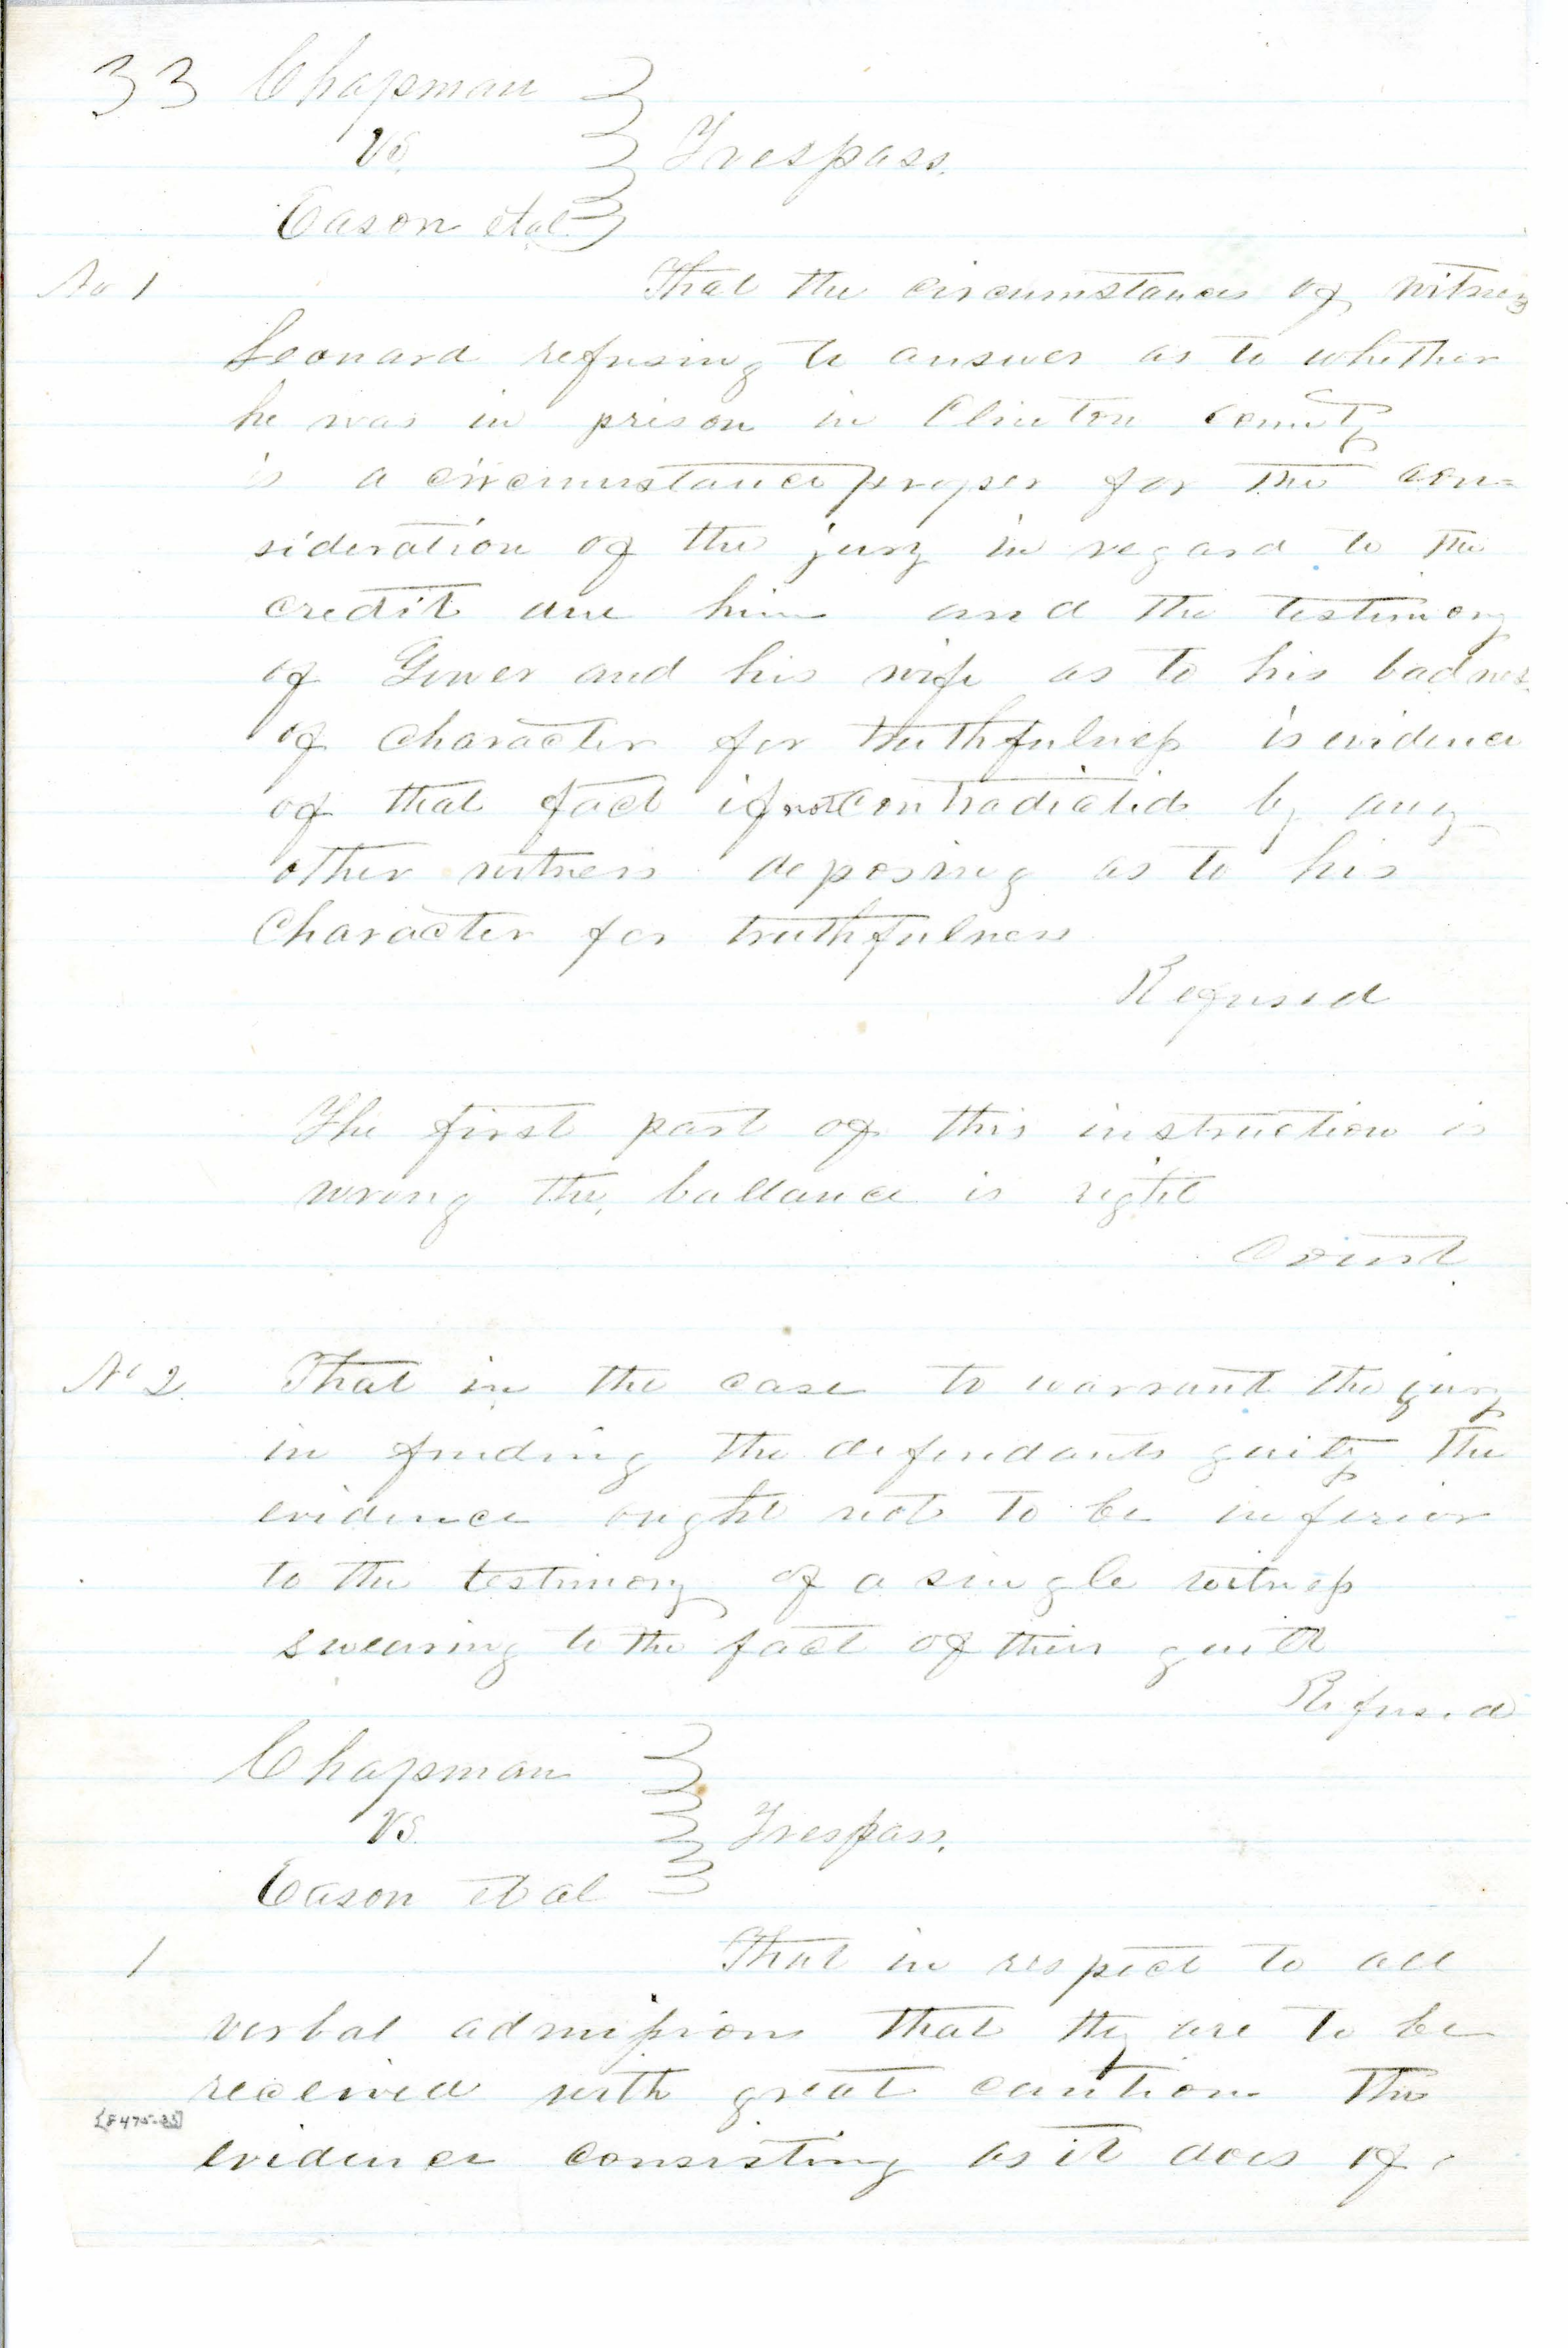 33 Chapman
vs. } Trespass.
Eason et al.
No 1 That the circumstances of witness
Leonard refusing to answer as to whether
he was in prison in Clinton County
is a circumstance proper for the con=
sideration of the jury in regard to the
credit due him and the testimony
of Gower and his wife as to his badness
of character for truthfulness is evidence
of that fact if not contradicted by any
other witness deposing as to his
Character for truthfulness
Refused
The first part of this instruction is
wrong the ballance is right
Court
No 2. That in the case to warrant the jury
in finding the defendants guilty the
evidence ought not to be inferior
to the testimony of a single witness
swearing to the fact of their guilt
Refused
Chapman
vs. } Trespass.
Eason et al
1 That in respect to all
verbal admissions that they are to be
received with great caution The
evidence consisting as it does of